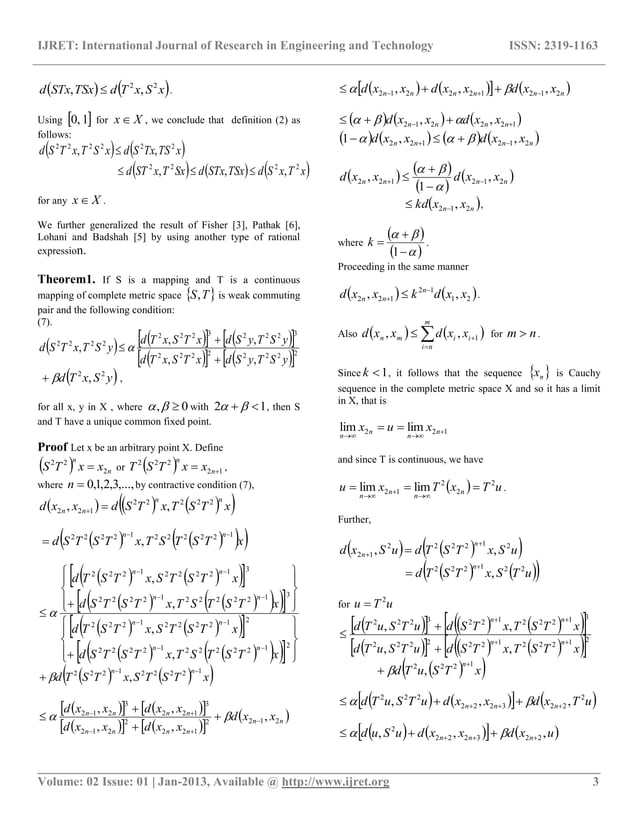 IJRET: International Journal of Research in Engineering and Technology ISSN: 2319-1163
d(STx,TSx) ≤ d(T²x, S²x).
Using [0, 1] for x ∈ X, we conclude that definition (2) as
follows:
d(S²T²x,T²S²x) ≤ d(S²Tx,TS²x)
≤ d(ST²x,T²Sx) ≤ d(STx,TSx) ≤ d(S²x,T²x)
for any x ∈ X.
We further generalized the result of Fisher [3], Pathak [6],
Lohani and Badshah [5] by using another type of rational
expression.
Theorem1. If S is a mapping and T is a continuous
mapping of complete metric space {S,T} is weak commuting
pair and the following condition:
(7).
d(S²T²x,T²S²y) ≤ α ([d(T²x,S²T²x)]³ + [d(S²y,T²S²y)]³)/([d(T²x,S²T²x)]² + [d(S²y,T²S²y)]²)
+ βd(T²x,S²y),
for all x, y in X , where α,β ≥ 0 with 2α + β < 1, then S
and T have a unique common fixed point.
Proof Let x be an arbitrary point X. Define
(S²T²)ⁿ x = x₂ₙ or T²(S²T²)ⁿ x = x₂ₙ₊₁,
where n = 0,1,2,3,..., by contractive condition (7),
d(x₂ₙ, x₂ₙ₊₁) = d((S²T²)ⁿ x,T²(S²T²)ⁿ x)
= d(S²T²(S²T²)ⁿ⁻¹ x,T²S²(T²(S²T²)ⁿ⁻¹)x)
≤ α { [d(T²(S²T²)ⁿ⁻¹ x, S²T²(S²T²)ⁿ⁻¹ x)]³
+ [d(S²T²(S²T²)ⁿ⁻¹ x,T²S²(T²(S²T²)ⁿ⁻¹)x)]³
[d(T²(S²T²)ⁿ⁻¹ x, S²T²(S²T²)ⁿ⁻¹ x)]²
+ [d(S²T²(S²T²)ⁿ⁻¹ x,T²S²(T²(S²T²)ⁿ⁻¹)x)]² }
+ βd(T²(S²T²)ⁿ⁻¹ x, S²T²(S²T²)ⁿ⁻¹ x)
≤ α ([d(x₂ₙ₋₁, x₂ₙ)]³ + [d(x₂ₙ, x₂ₙ₊₁)]³)/([d(x₂ₙ₋₁, x₂ₙ)]² + [d(x₂ₙ, x₂ₙ₊₁)]²) + βd(x₂ₙ₋₁, x₂ₙ)
≤ α[d(x₂ₙ₋₁, x₂ₙ) + d(x₂ₙ, x₂ₙ₊₁)] + βd(x₂ₙ₋₁, x₂ₙ)
≤ (α + β)d(x₂ₙ₋₁, x₂ₙ) + αd(x₂ₙ, x₂ₙ₊₁)
(1 − α)d(x₂ₙ, x₂ₙ₊₁) ≤ (α + β)d(x₂ₙ₋₁, x₂ₙ)
d(x₂ₙ, x₂ₙ₊₁) ≤ (α + β)/(1 − α) d(x₂ₙ₋₁, x₂ₙ)
≤ kd(x₂ₙ₋₁, x₂ₙ),
where k = (α + β)/(1 − α).
Proceeding in the same manner
d(x₂ₙ, x₂ₙ₊₁) ≤ k²ⁿ⁻¹d(x₁, x₂).
Also d(xₙ, xₘ) ≤ ∑ᵢ₌ₙᵐ d(xᵢ, xᵢ₊₁) for m > n.
Since k < 1, it follows that the sequence {xₙ} is Cauchy
sequence in the complete metric space X and so it has a limit
in X, that is
lim n→∞ x₂ₙ = u = lim n→∞ x₂ₙ₊₁
and since T is continuous, we have
u = lim n→∞ x₂ₙ₊₁ = lim n→∞ T²(x₂ₙ) = T²u.
Further,
d(x₂ₙ₊₁, S²u) = d(T²(S²T²)ⁿ⁺¹ x, S²u)
= d(T²(S²T²)ⁿ⁺¹ x, S²(T²u))
for u = T²u
≤ ([d(T²u,S²T²u)]³ + [d((S²T²)ⁿ⁺¹ x,T²(S²T²)ⁿ⁺¹ x)]³)/([d(T²u,S²T²u)]² + [d((S²T²)ⁿ⁺¹ x,T²(S²T²)ⁿ⁺¹ x)]²)
+ βd(T²u,(S²T²)ⁿ⁺¹ x)
≤ α[d(T²u,S²T²u) + d(x₂ₙ₊₂, x₂ₙ₊₃)] + βd(x₂ₙ₊₂,T²u)
≤ α[d(u,S²u) + d(x₂ₙ₊₂, x₂ₙ₊₃)] + βd(x₂ₙ₊₂,u)
Volume: 02 Issue: 01 | Jan-2013, Available @ http://www.ijret.org 3